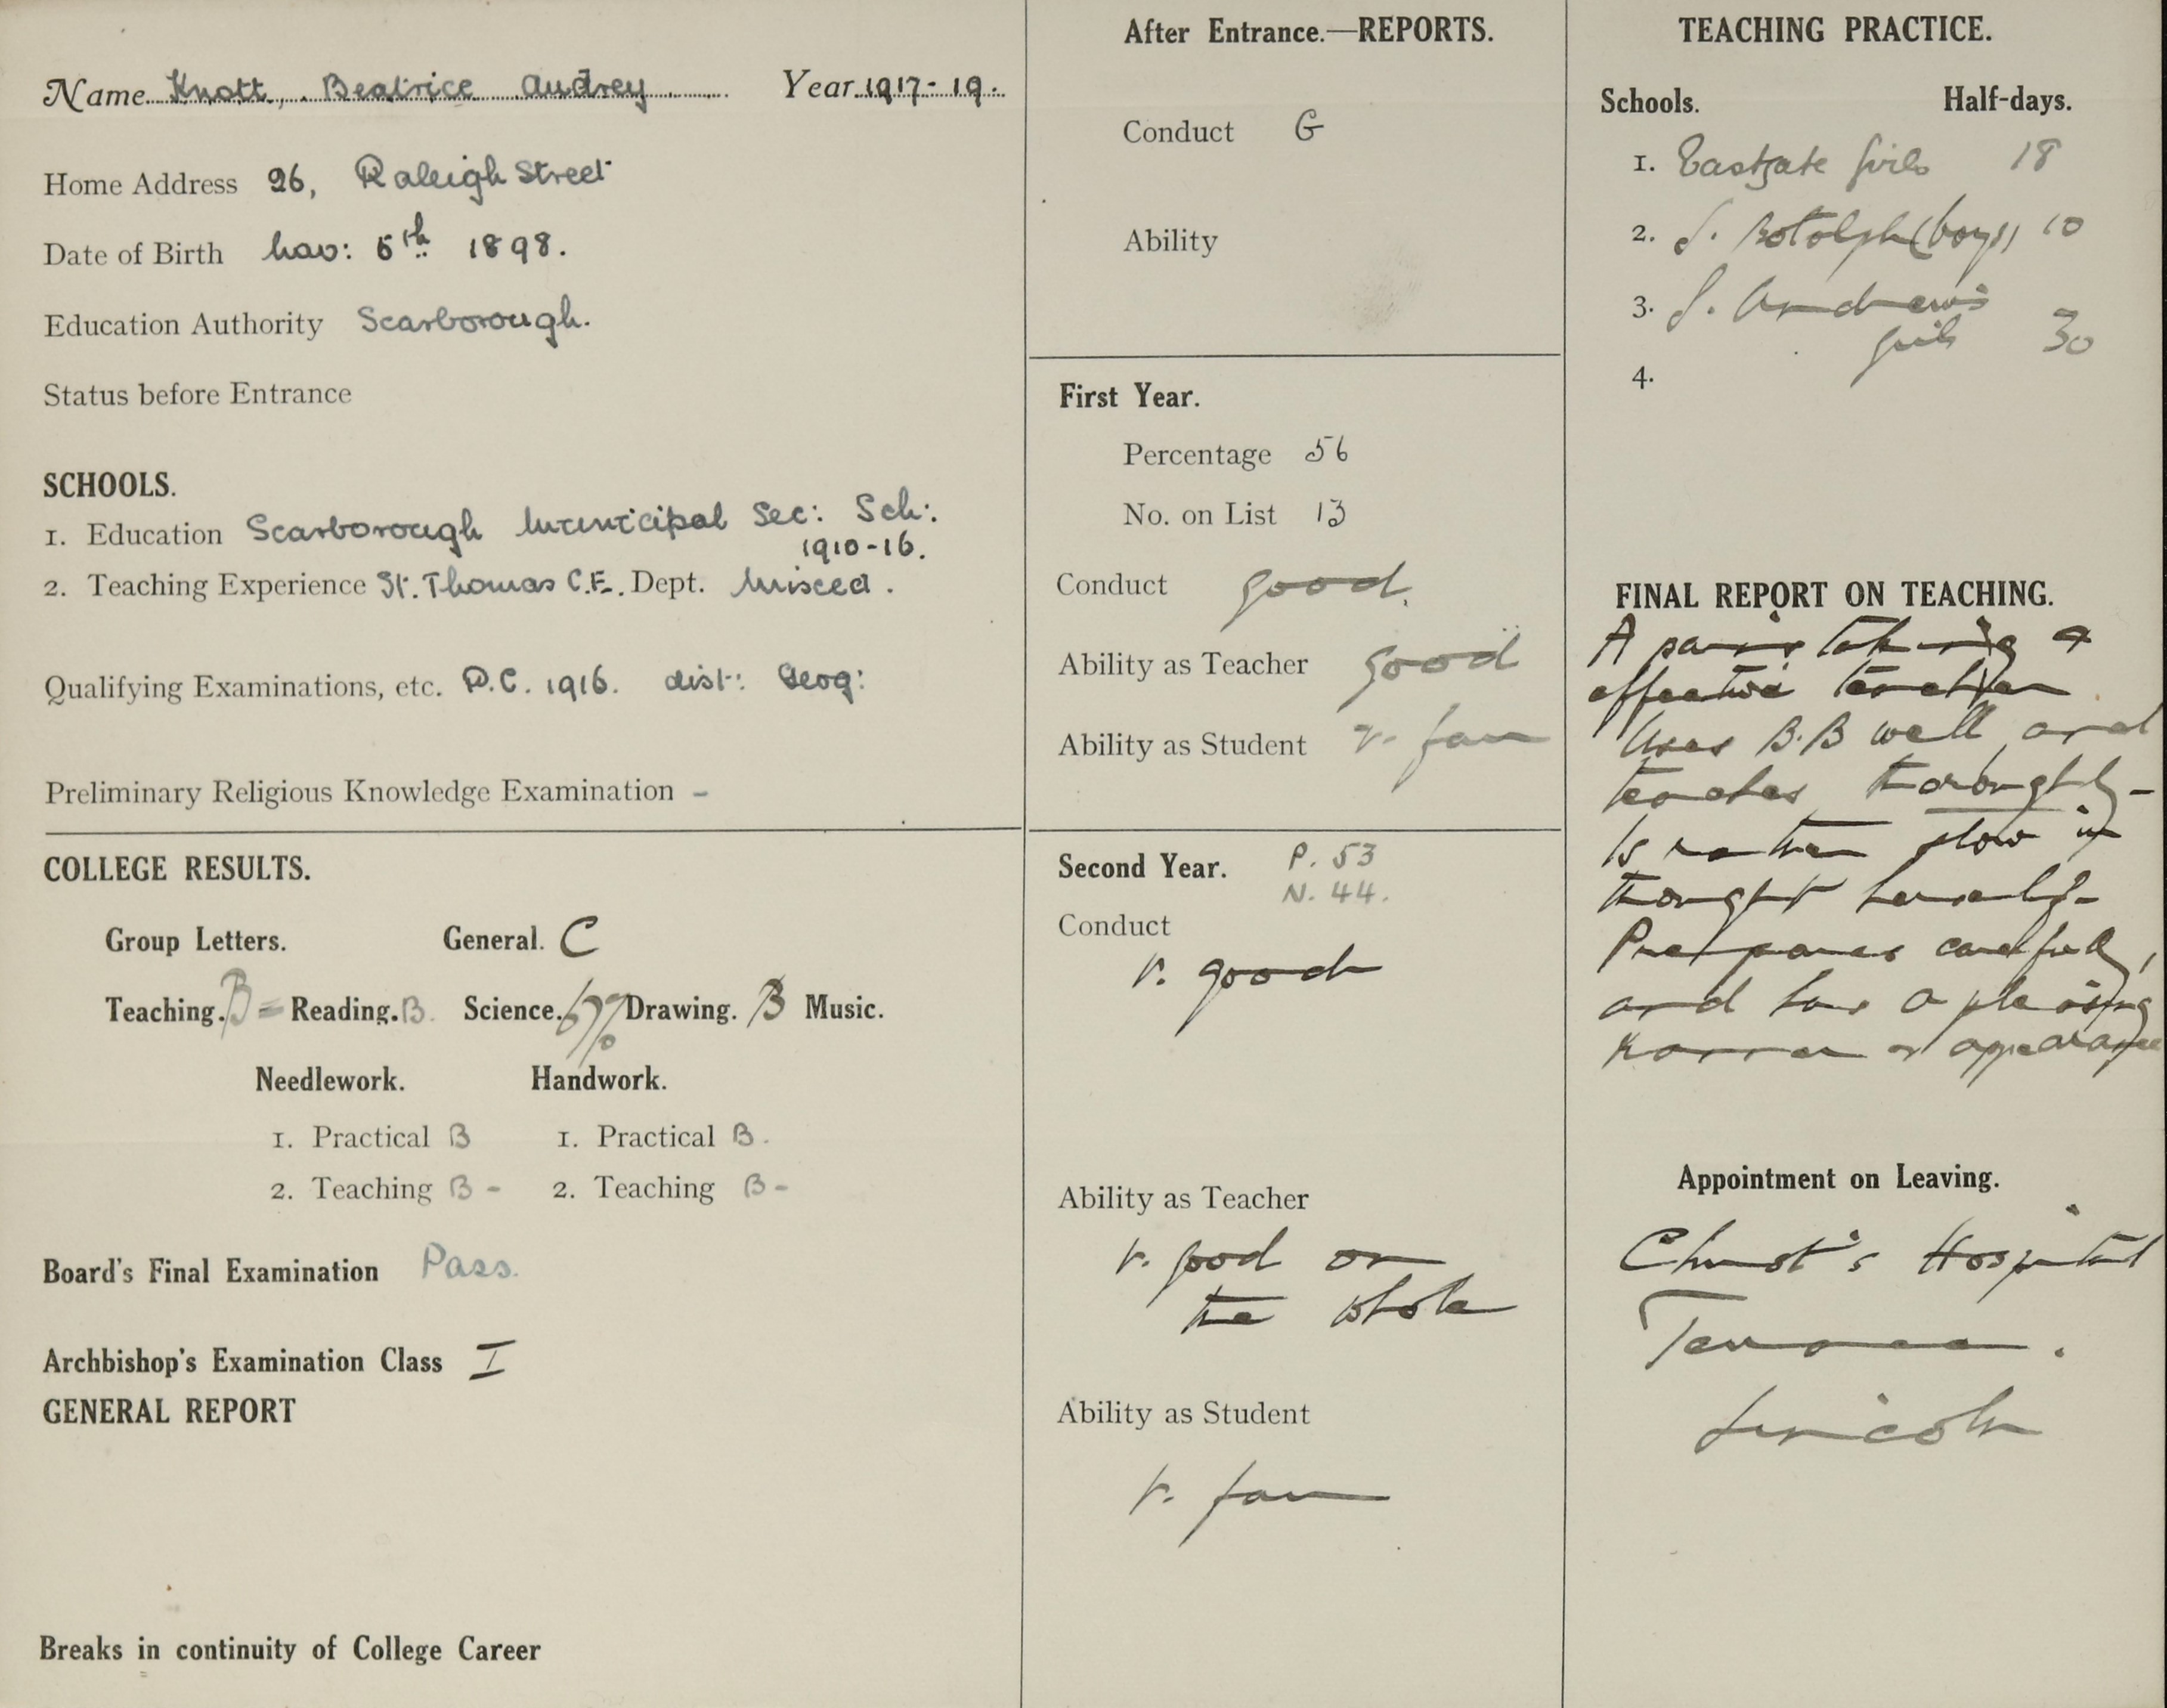 Name Knott, Beatrice Audrey Year 1917-19.
Home Address 26, Raleigh Street
Date of Birth Nov: 5th 1898.
Education Authority Scarborough.
Status before Entrance
SCHOOLS.
1. Education Scarborough Municipal Sec: Sch:
1910-16.
2. Teaching Experience St. Thomas C.E. Dept. Mixed.
Qualifying Examinations, etc. P.C. 1916. dist: Geog:
Preliminary Religious Knowledge Examination -
COLLEGE RESULTS.
Group Letters. General. C
Teaching. B= Reading. B. Science. 67% Drawing. B Music.
Needlework. Handwork.
1. Practical B 1. Practical B.
2. Teaching B - 2. Teaching B -
Board's Final Examination Pass.
Archbishop's Examination Class I
GENERAL REPORT
Breaks in continuity of College Career
After Entrance.—REPORTS.
Conduct G
Ability
First Year.
Percentage 56
No. on List 13
Conduct good.
Ability as Teacher good
Ability as Student v. fair
Second Year. P. 53
N. 44.
Conduct
v. good
Ability as Teacher
v. good on
the whole
Ability as Student
v. fair
TEACHING PRACTICE.
Schools. Half-days.
1. Eastgate Girls 18
2. S. Botolph (boys) 10
3. S. Andrew's
girls 30
4.
FINAL REPORT ON TEACHING.
A painstaking &
effective teacher
Uses B.B well, and
teaches thoroughly-
Is rather slow in
thought herself-
Prepares carefully,
and has a pleasing
manner & appearance
Appointment on Leaving.
Christ's Hospital
Terrace.
Lincoln